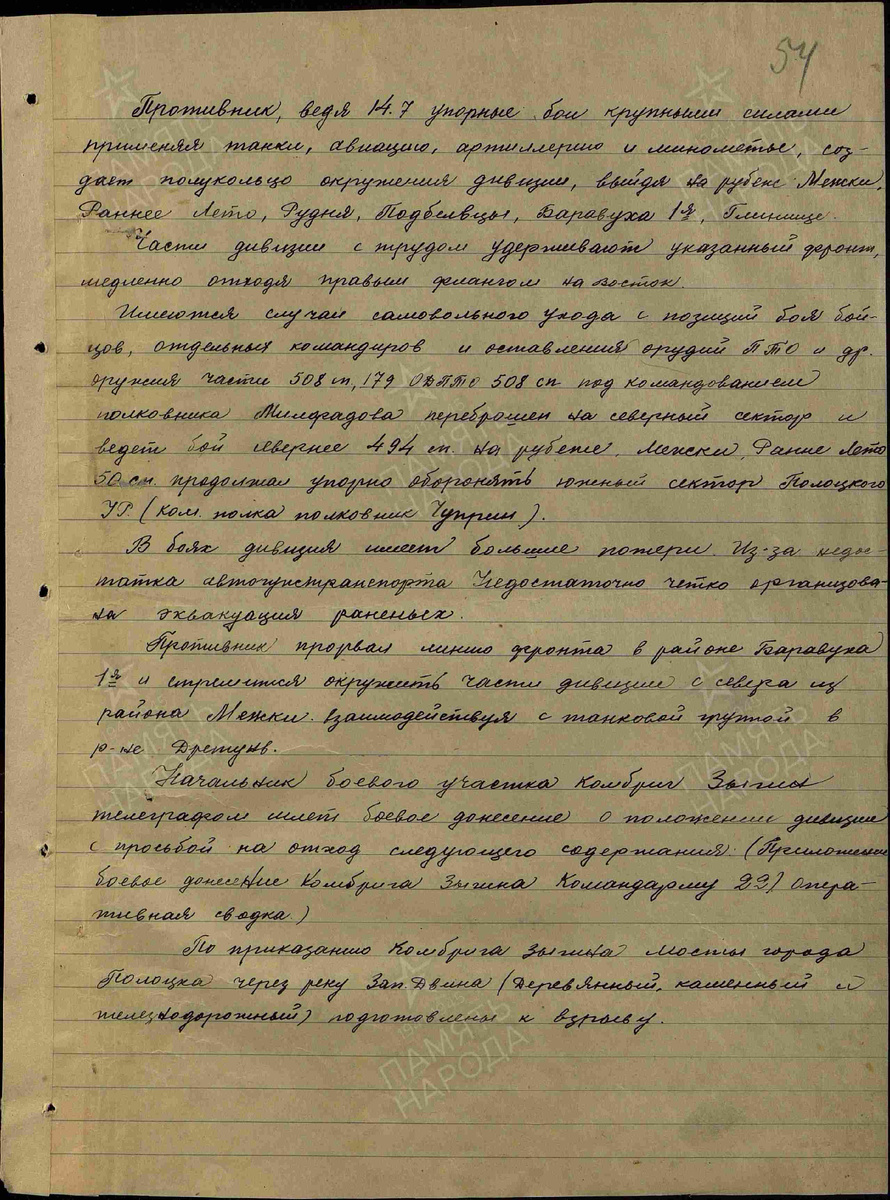 54
Противник, ведя 14.7 упорные бои крупными силами
применяя танки, авиацию, артиллерию и минометы, соз-
дает полукольцо окружения дивизии, выйдя на рубеж Межки,
Раннее Лето, Рудня, Подбелевцы, Баравуха 1я, Глинище.
Части дивизии с трудом удерживают указанный фронт,
медленно отходя правым флангом на восток.
Имеются случаи самовольного ухода с позиций боя бой-
цов, отдельных командиров и оставления орудий ПТО и др.
оружия части 508 п, 179 ОДПТО 508 сп под командованием
полковника переброшен на северный сектор и
ведет бой севернее 494 п. на рубеже Межки, Ранне Лето
50 сп. продолжал упорно оборонять южный сектор Полоцкого
УР. (ком. полка полковник Чуприн).
В боях дивизия имеет большие потери. Из-за недос-
татка недостаточно четко организова-
на эвакуация раненых.
Противник прорвал линию фронта в районе Баравуха
1я и стремится окружить части дивизии с севера из
района Межки взаимодействуя с танковой группой в
р-не Дретунь.
Начальник боевого участка Комбриг Зыгин
телеграфом шлет боевое донесение о положении дивизии
с просьбой на отход следующего содержания. (Приложение
боевое донесение Комбрига Зыгина Командарму 22) опера-
тивная сводка.)
По приказанию Комбрига Зыгина мосты города
Полоцка через реку Зап. Двина (Деревянный, каменный и
железнодорожный) подготовлены к взрыву.
ПАМЯТЬ
НАРОДА